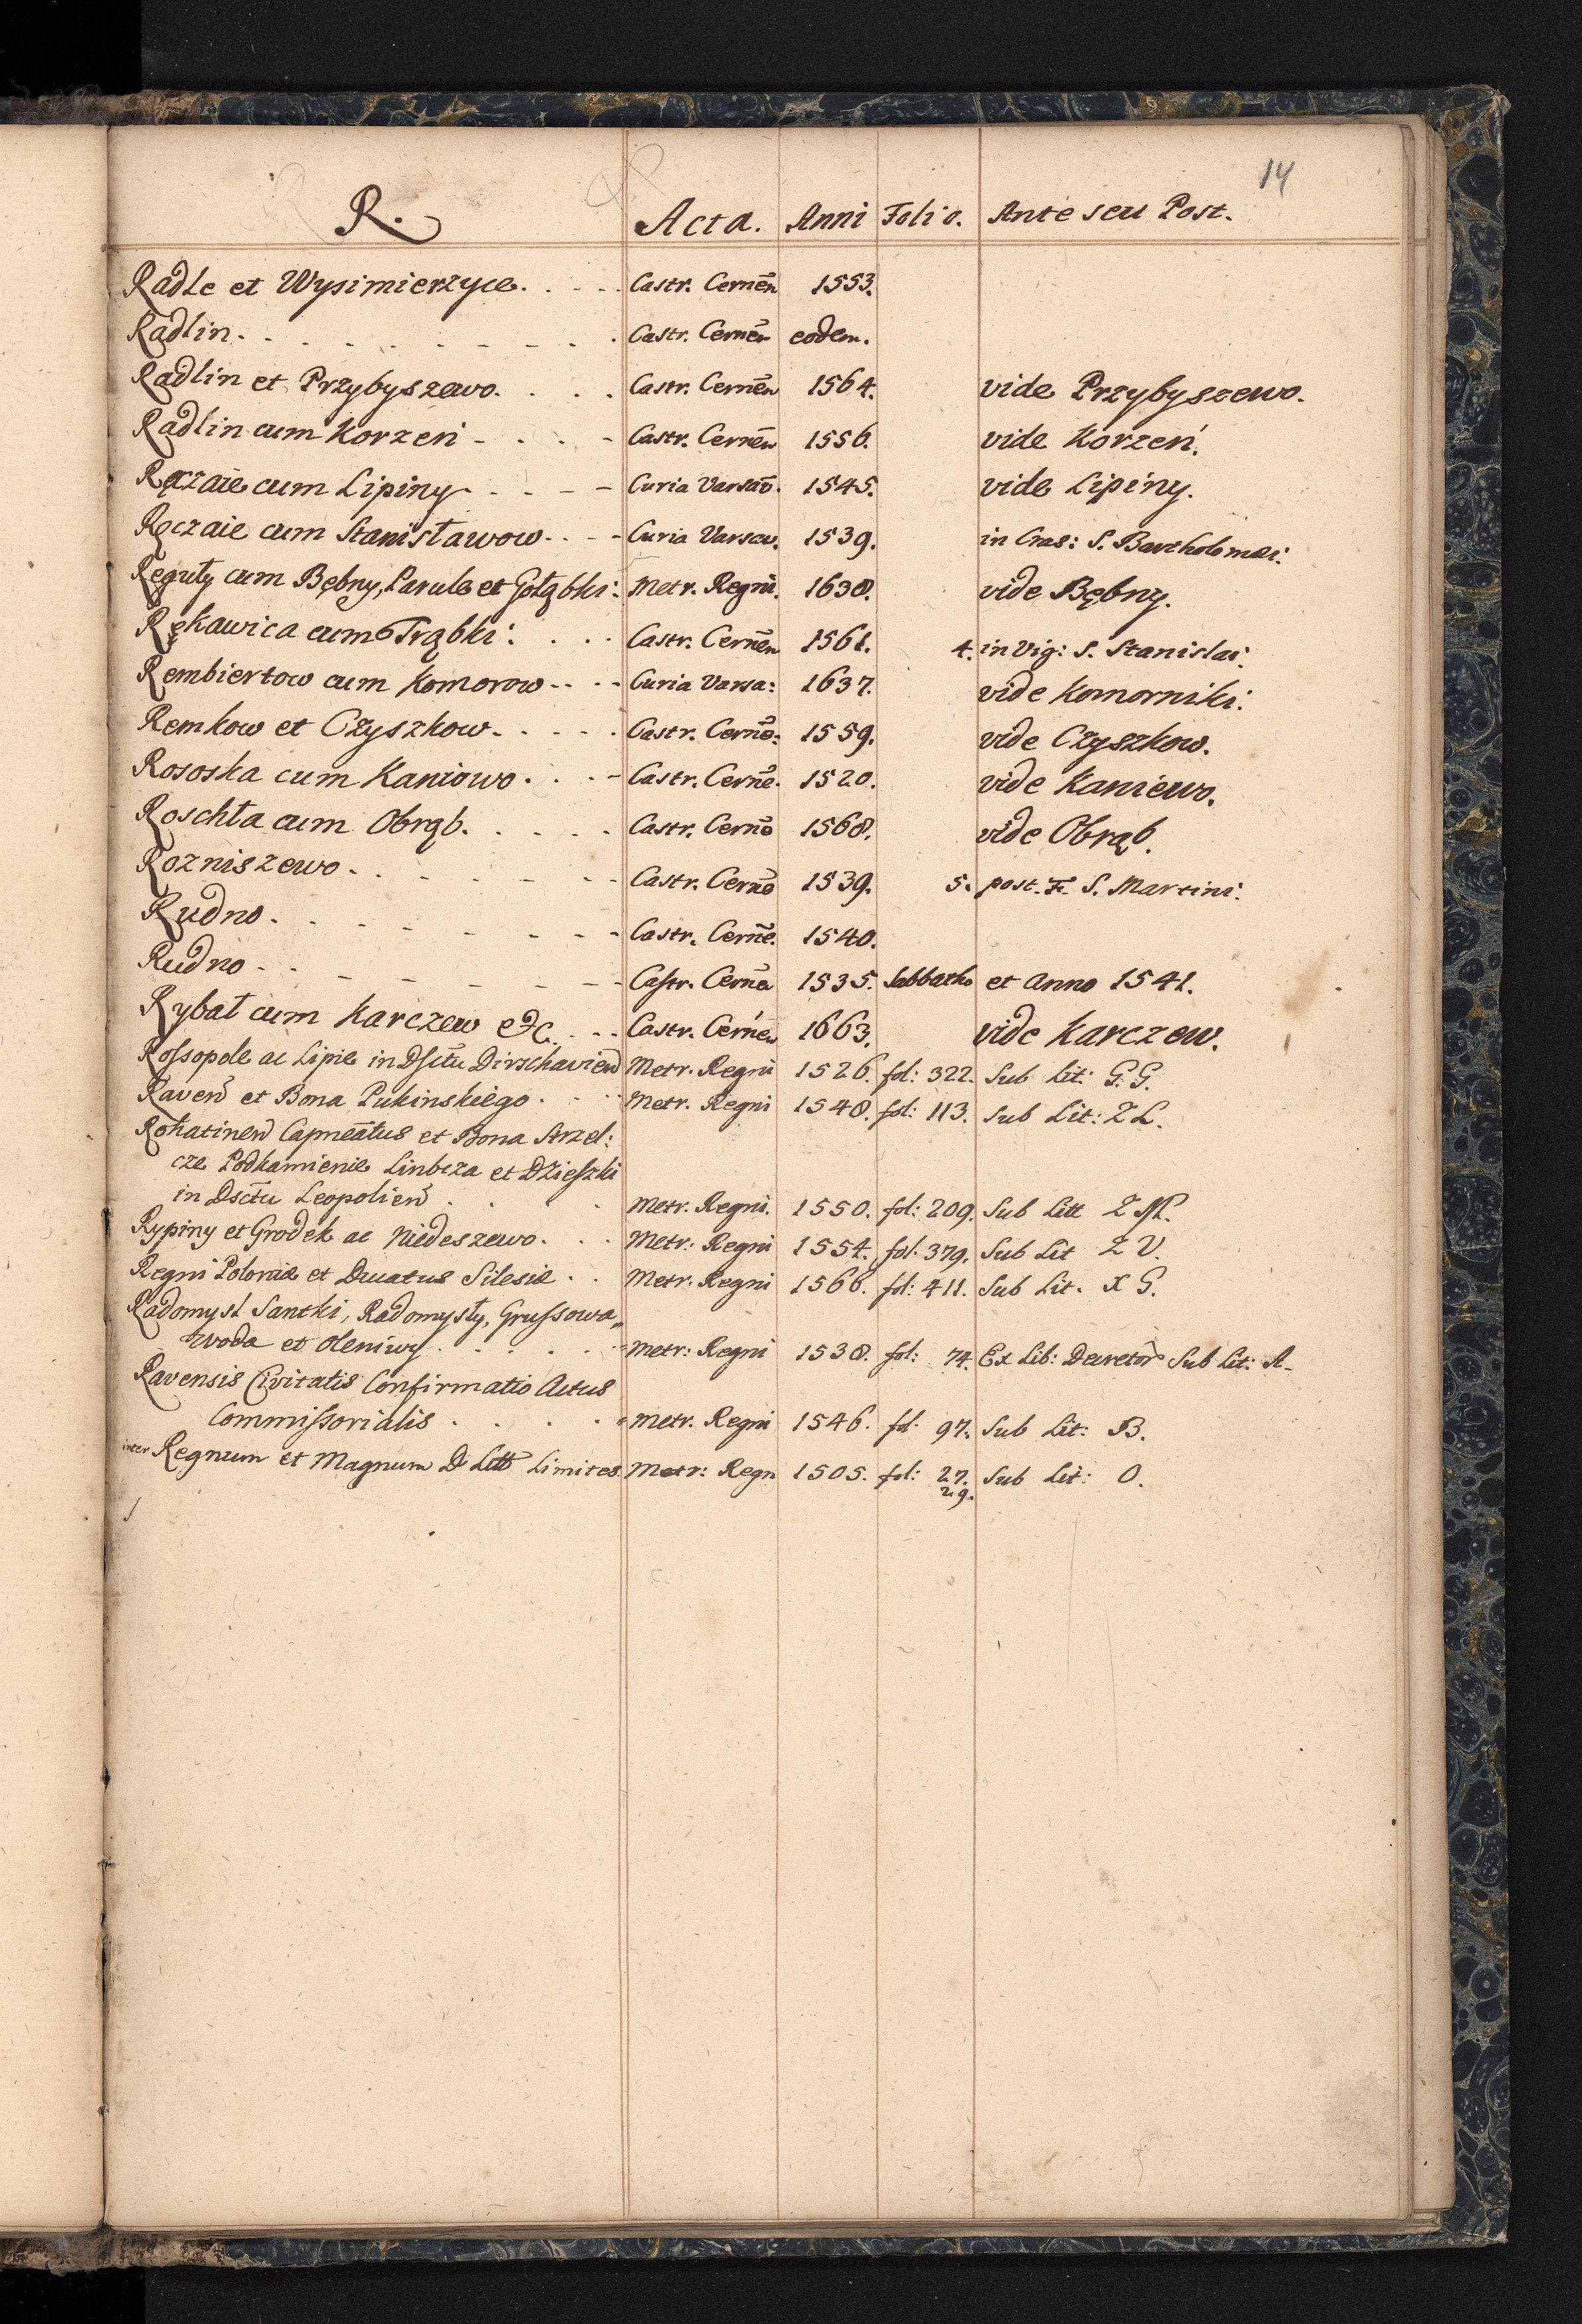 14
R. Acta. Anni Folio. Ante seu Post.
Radle et Wysimierzyce. . . . . Castr. Cernēn 1553.
Radlin. . . . . . . . . Castr. Cernēn eodem.
Radlin et Przybyszewo. . . . Castr. Cernēn 1564. vide Przybyszewo.
Radlin cum Korzeń - . . - Castr. Cernēn 1556. vide Korzeń.
Ręczaie cum Lipiny . . - - Curia Varsāv. 1545. vide Lipiny.
Ręczaie cum Stanisławow . . - - Curia Varsav. 1539. in Cras: S. Bartholomæi.
Reguły cum Bębny, Parule et Gołąbki: Metr. Regni. 1638. vide Bębny.
Rękawica cum Trąbki. . . . Castr. Cernēn 1561. 4. in Vig: S. Stanislai.
Rembiertow cum Komorow - . - - Curia Varsa: 1637. vide Komorniki.
Remkow et Czyszkow. . . . . Castr. Cernē: 1559. vide Czyszkow.
Rososka cum Kaniowo. . . - Castr. Cernē. 1520. vide Kaniewo.
Roschła cum Obrąb. . . . . Castr. Cernē 1568. vide Obrąb.
Rozniszewo. . . . . . - Castr. Cernē 1539. 5. post. F. S. Martini.
Rudno. . . - - - - - Castr. Cernē. 1540.
Rudno . . - - - - - Castr. Cernē 1535. Sabbatho et Anno 1541.
Rybał cum Karczew etc. . - Castr. Cernēn 1663. vide Karczew.
Rossopole ac Lipie in Dsctu Dirschavien Metr. Regni 1526. fol: 322. Sub Lit: G.G.
Raven et Bona Pukinskiego . . . Metr. Regni 1548. fol: 113. Sub Lit: Z L.
Rohatinen Capneātus et Bona Strzel:
cze Podkamienie Linbcza et Dzieszki
in Dsctu Leopolien . . . Metr. Regni. 1550. fol: 209. Sub Litt Z N.
Rypiny et Grodek ac Niedeszewo. . . Metr: Regni 1554. fol. 379. Sub Lit Z V.
Regni Poloniæ et Ducatus Silesiæ . . Metr. Regni 1566. fol: 411. Sub Lit. X G.
Radomysl Santki, Radomysły, Grussowa„
woda et Oleniwy . . . . . Metr: Regni 1538. fol: 74. Ex Lib: Decretor Sub Lit: A-
Ravensis Civitatis Confirmatio Actus
Commissorialis . . . . Metr. Regni 1546. fol. 97. Sub Lit: B.
inter Regnum et Magnum D Litt Limites Metr: Regn 1505. fol: 27. Sub Lit: O.
29.